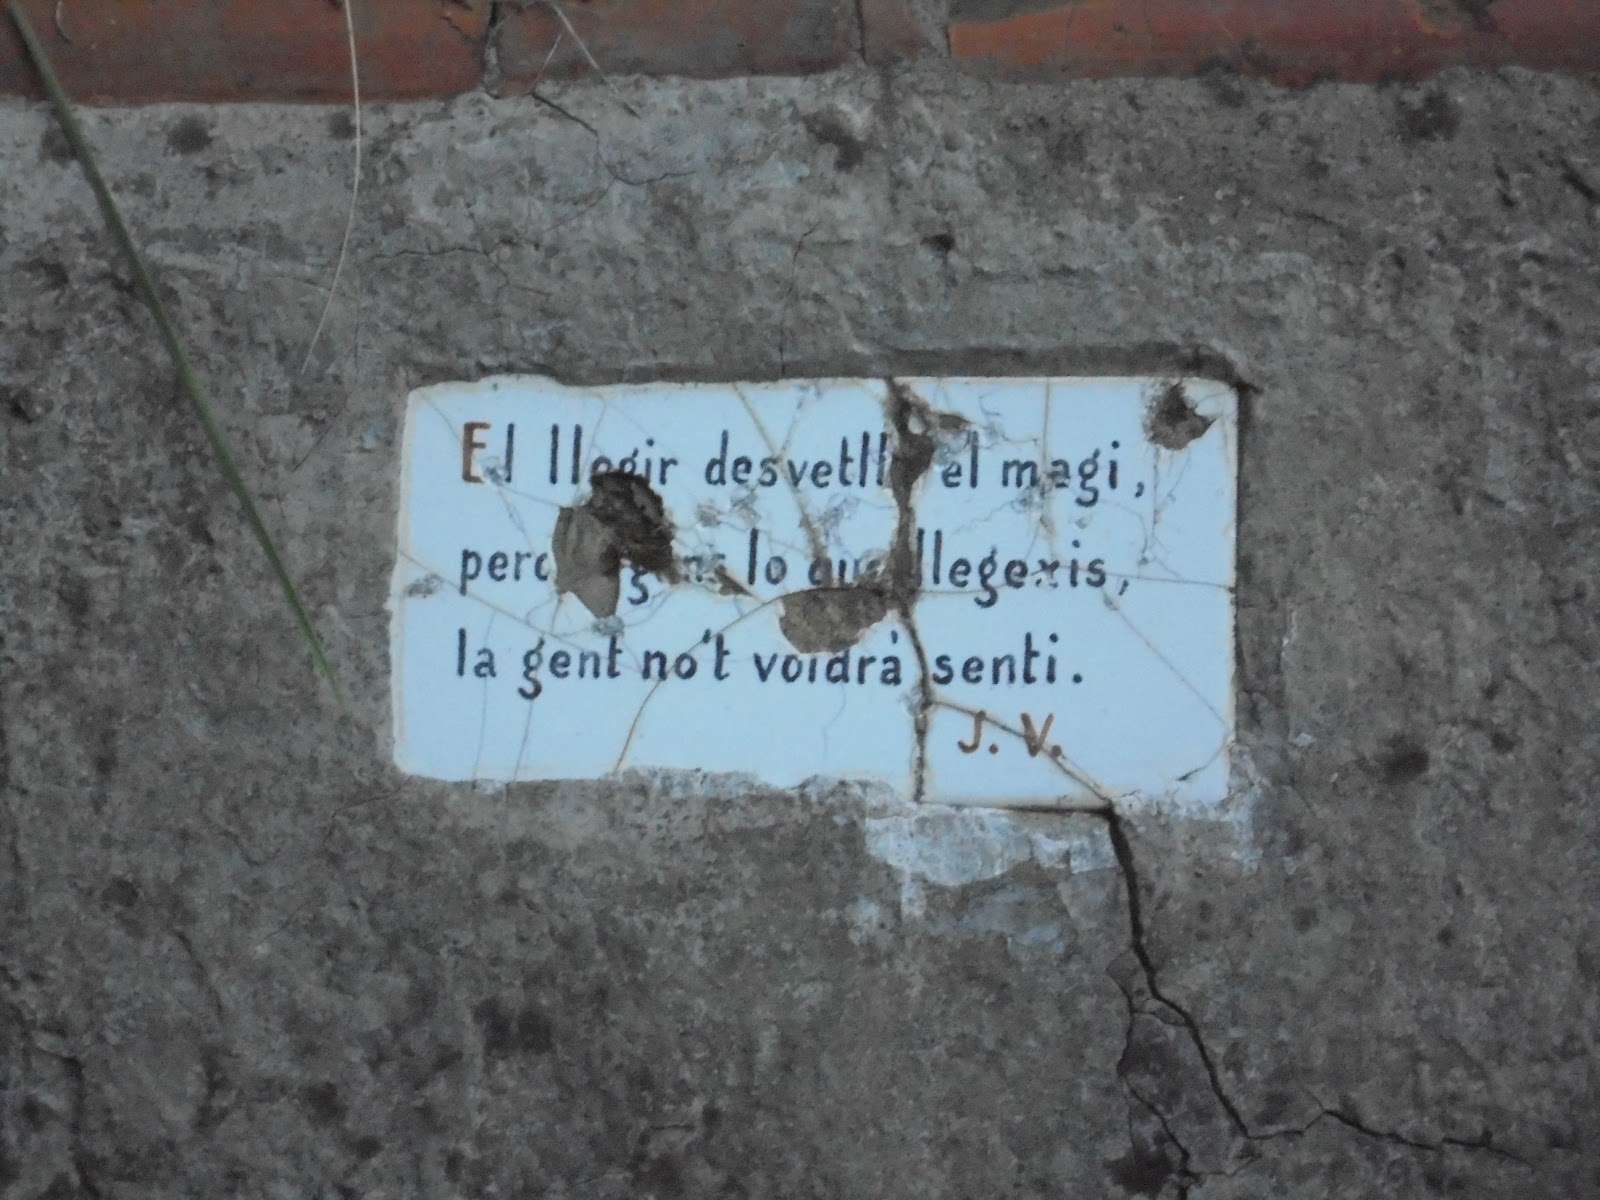 El llegir desvetlla el magi,
però lo que llegexis,
la gent no't voldrà senti.
J. V.